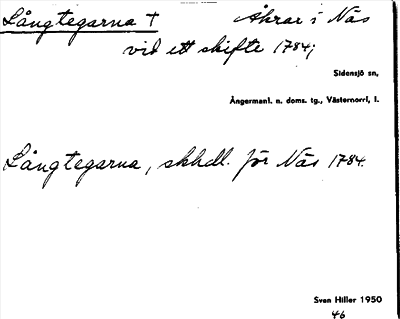 Långtegarna † Åkrar i Näs
vid ett skifte 1784;
Sidensjö sn,
Ångermanl. n. doms. tg., Västernorrl, l.
Långtegarna, skhdl. för Näs 1784.
Sven Hiller 1950
46